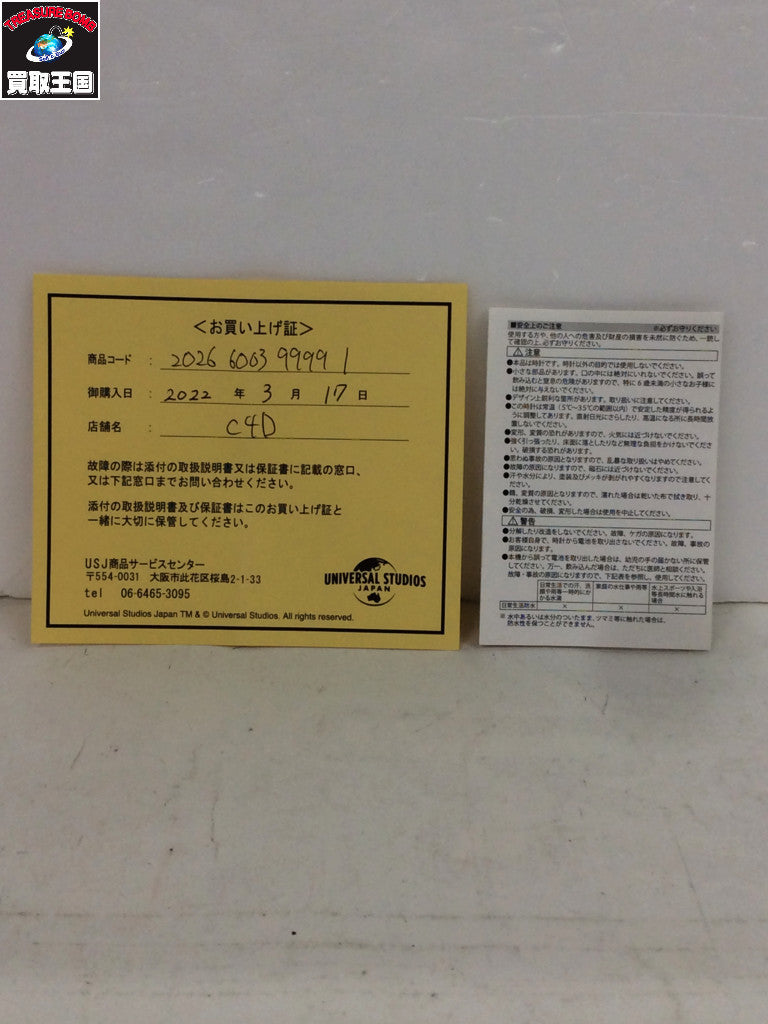 TREASURE BOMB
買取王国
<お買い上げ証>
商品コード : 2026 6063 9999 1
御購入日 : 2022 年 3 月 17 日
店舗名 : C4D
故障の際は添付の取扱説明書又は保証書に記載の窓口、
又は下記窓口までお問い合わせください。
添付の取扱説明書及び保証書はこのお買い上げ証と
一緒に大切に保管してください。
USJ商品サービスセンター
〒554-0031 大阪市此花区桜島2-1-33
tel 06-6465-3095
UNIVERSAL STUDIOS
JAPAN
Universal Studios Japan TM & © Universal Studios. All rights reserved.
■安全上のご注意 ※必ずお守りください
使用する方や、他の人への危害及び財産の損害を未然に防ぐため、一読し
て確認の上、必ずお守りください。
⚠注意
●本品は時計です。時計以外の目的では使用しないでください。
●小さな部品があります。口の中には絶対にいれないでください。誤って
飲み込むと窒息の危険がありますので、特に6歳未満の小さなお子様に
は絶対に与えないでください。
●デザイン上鋭利な箇所があります。取り扱いに注意してください。
●この時計は常温(5℃~35℃の範囲以内)で安定した精度が得られるよ
うに調整してあります。直射日光にさらしたり、高温になる所に長時間放
置しないでください。
●変形、変質の恐れがありますので、火気には近づけないでください。
●強く引っ張ったり、床面に落としたりなど無理な負担をかけないでくださ
い。破損する恐れがあります。
●思わぬ事故の原因となりますので、乱暴な取り扱いはやめてください。
●故障の原因になりますので、磁石には近づけないでください。
●汗や水分により、塗装及びメッキが剥がれやすくなりますので注意してく
ださい。
●錆、変質の原因となりますので、濡れた場合は乾いた布で拭き取り、十
分乾燥させてください。
●安全の為、破損、変形した場合は使用を中止してください。
⚠警告
●分解したり改造をしないでください。故障、ケガの原因になります。
●お客様自身で、時計から電池を取り出さないでください。故障、事故の
原因になります。
●本機から誤って電池を取出した場合は、幼児の手の届かない所に保管
してください。万一、飲み込んだ場合は、ただちに医師と相談ください。
故障・事故の原因になりますので、下記表を参照し、使用してください。
日常生活での汗、洗顔や雨等一時的にかかる水滴 家庭の水仕事や雨等 水上スポーツや入浴等長時間水に触れる場合
日常生活防水 × × ×
※ 水中あるいは水分のついたまま、ツマミ等に触れた場合は、
防水性を保つことができません。